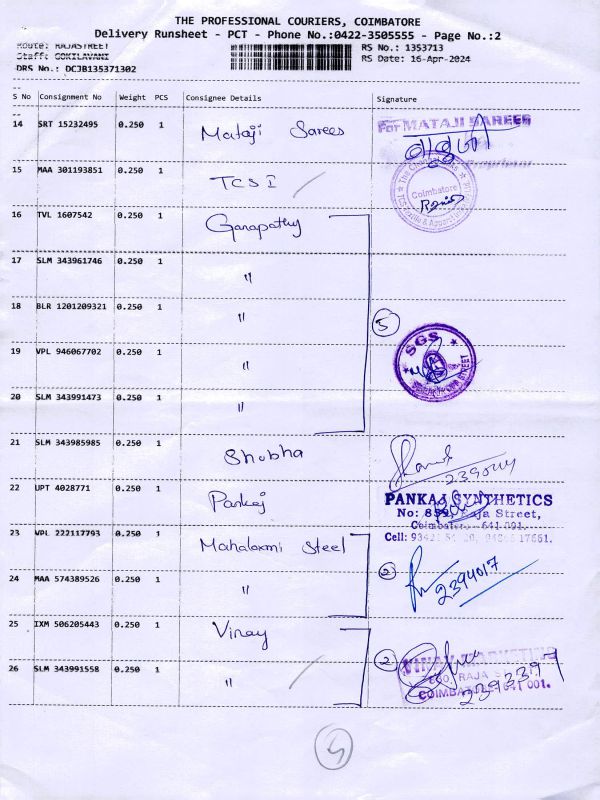 THE PROFESSIONAL COURIERS, COIMBATORE
Delivery Runsheet - PCT - Phone No.:0422-3505555 - Page No.:2
Route: RAJASTREET
RS No.: 1353713
Staff: GOKILAVANI
RS Date: 16-Apr-2024
DRS No.: DCJB135371302
S No Consignment No Weight PCS Consignee Details Signature
14 SRT 15232495 0.250 1 Mataji Sarees
For MATAJI SAREES
15 MAA 301193851 0.250 1 TCS I
Coimbatore
16 TVL 1607542 0.250 1 Ganapathy
17 SLM 343961746 0.250 1 "
18 BLR 1201209321 0.250 1 "
5
19 VPL 946067702 0.250 1 "
SGS
20 SLM 343991473 0.250 1 "
21 SLM 343985985 0.250 1 Shobha
22 UPT 4028771 0.250 1 Pankaj
PANKAJ SYNTHETICS
Raja Street,
Coimbatore - 641 001.
23 VPL 222117793 0.250 1 Mahalaxmi Steel
2
24 MAA 574389526 0.250 1 "
2394017
25 IXM 506205443 0.250 1 Vinay
2
VINAY MARKETING
RAJA
26 SLM 343991558 0.250 1 "
COIMBATORE-641 001.
2393397